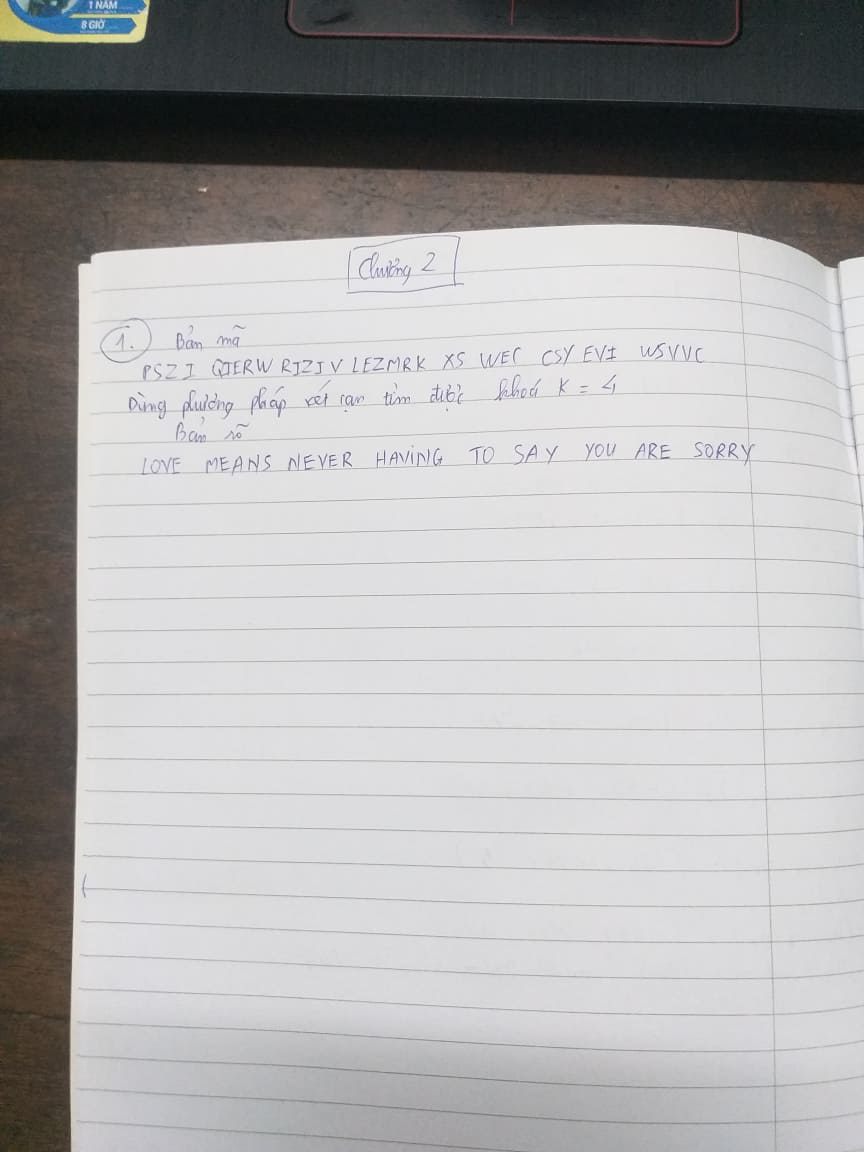 1 NĂM
8 GIỜ
Chương 2
1. Bản mã
PSZI QIERW RIZIV LEZMRK XS WEC CSY EVI WSVVC
Dùng phương pháp vét cạn tìm được khoá K = 4
Bản rõ
LOVE MEANS NEVER HAVING TO SAY YOU ARE SORRY